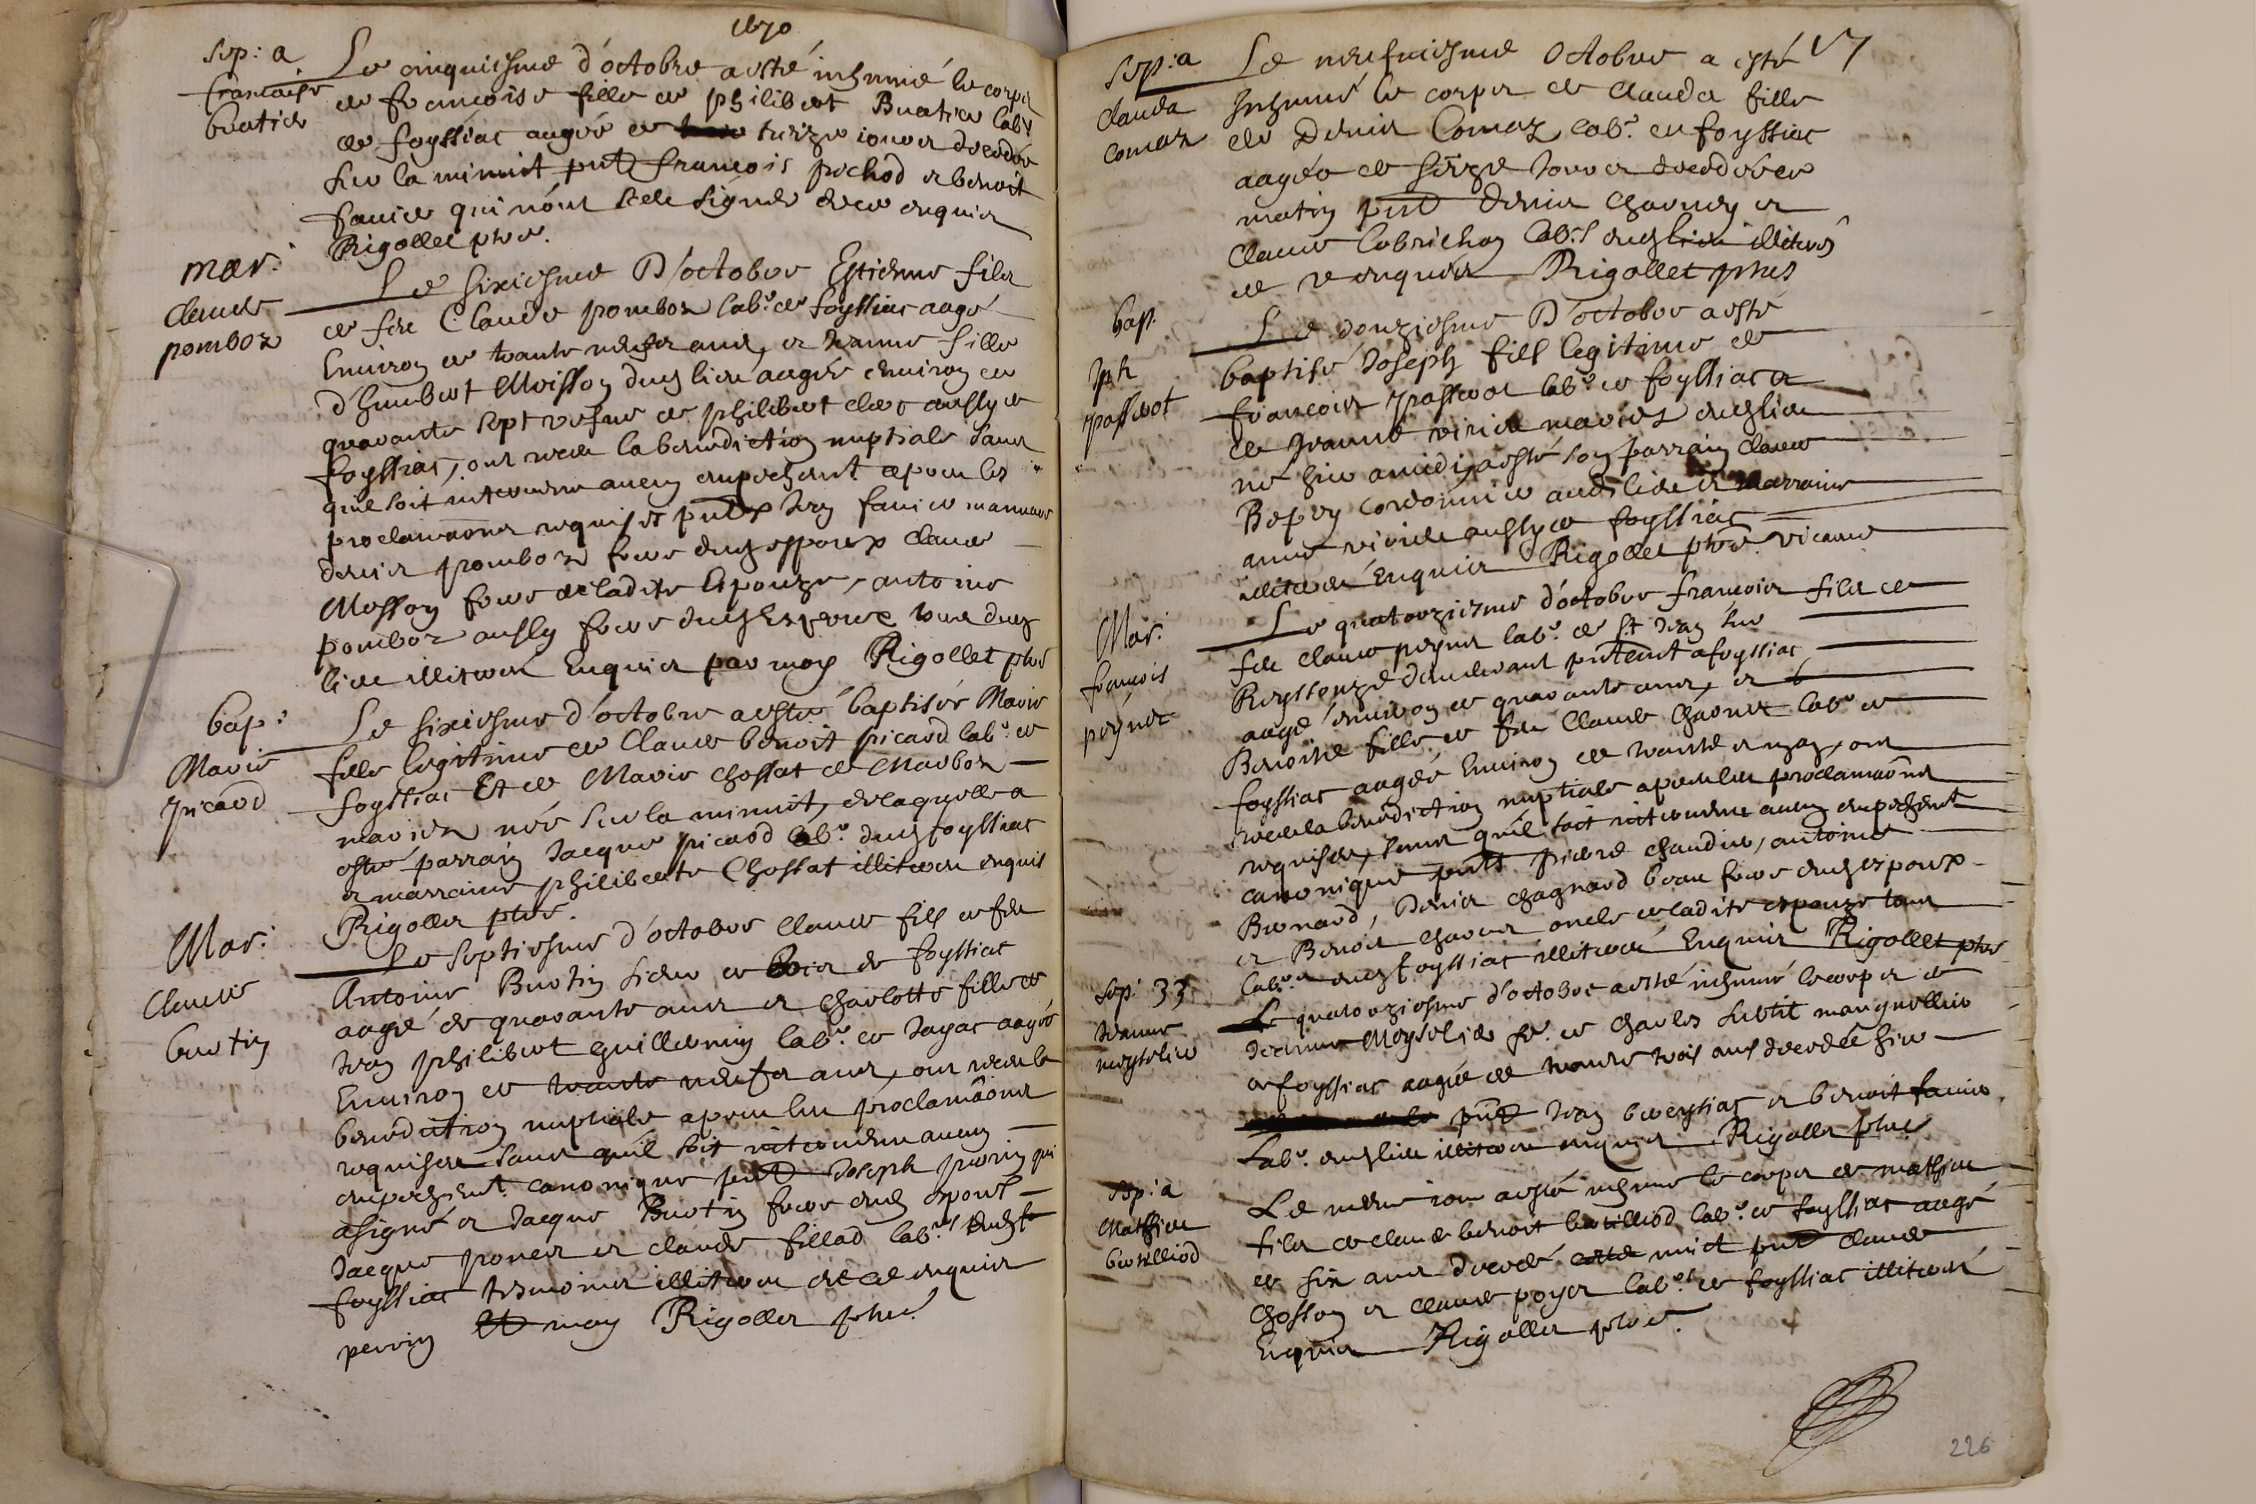 1670
Sep: a
francoise
buatier
Le cinquiesme d'octobre a esté inhumé le corps
de francoise fille de philibert Buatier lab.r
de foyssiac aagée de treize jours decedée
sur la minuit pnt francois pochod et benoit
favier qui n'ont sceu signer de ce enquis
Rigollet pbre.
mar:
Claude
pombor
Le sixiesme D'octobre Estienne filz
de feu Claude pombor lab.r de foyssiac aagé
Environ de trante neuf ans, et Jeanne fille
d'humbert Moisson dud lieu aagée environ de
quarante sept vefve de philibert clerc aussy de
foyssiac, ont receu la benediction nuptiale sans
qu'il soit intervenu aucun empeschent apres les
proclamaōns requises pnts Jean favier
denis pombor frere dud espoux Claude
Mosson frere de ladite Espouze, antoine
pombor aussy frere dud Espoux tous dud
lieu illiteres Enquis par moy Rigollet pbre
bap:
Marie
picard
Le sixiesme d'octobre a esté baptisée Marie
fille legitime de Claude benoit picard lab.r de
foyssiac Et de Marie Chossat de Marbor
mariez née sur la minuit, de laquelle a
esté parrain Jacque picard lab.r dud foyssiac
et marraine philiberte Chossat illiteres enquis
Rigollet pbre.
Mar:
Claude
burtin
Le septiesme d'octobre Claude filz de feu
Antoine Burtin de foyssiac
aagé de quarante ans et Charlotte fille de
Jean philibert guillermin lab.r de Jayac aagée
Environ de trante neuf ans, ont receu la
benediction nuptiale apres les proclamaōns
requises sans qu'il soit intervenu aucun
empeschent canonique pnt Joseph perrin qui
a signé et Jacque Burtin frere dud espoux
Jacque poncet et claude fillod lab.rs dud
foyssiac tesmoins illiteres de ce enquis
perrin Et moy Rigollet pbre
Sep: a
Clauda
comaz
Le neufviesme Octobre a esté 17
Inhumé le corps de Clauda fille
de Denis Comaz lab.r de foyssiac
aagée de seize Jours decedée ce
matin pnt Denis Chaorney et
Claude Cobrichon lab.rs dud lieu illiteres
de ce enquis Rigollet pbre
bap.
Jph
passerot
Le douziesme D'octobre a esté
baptisé Joseph filz legitime de
francois passerot lab.r de foyssiac et
de Jeanne mariez dud lieu
né hier a midi, a esté son parrain Claude
Bepey cordonnier aud lieu et marraine
anne aussy de foyssiac
illiteres Enquis Rigollet pbre vicaire
Mar:
francois
peyner
Le quatorziesme d'octobre francois filz de
feu Claude peyner lab.r de St Jean sur
Reyssouze demeurant pntemt a foyssiac
aagé environ de quarante ans, et
Benoite fille de feu Claude Chaorner lab.r de
foyssiac aagée Environ de trante et un, ont
receu la benediction nuptiale apres les proclamaōns
requises, sans qu'il soit intervenu aucun empeschent
canonique pnts pierre chaudier, antoine
Bernard, Denis chagnard beau frere dud espoux
et Benoit chaorner oncle de ladite espouze tous
lab.rs dud foyssiac illiteres Enquis Rigollet pbre
Sep: 33
Jeanne
meyselier
Le quatorziesme d'octobre a esté inhumé le corps de
Jeanne Meyselier fe. de Charles Subtil manguellier
de foyssiac aagée de trante trois ans decedée hier
pnt Jean breyssiac et benoit favier
lab.r dud lieu illiteres enquis Rigollet pbre
Sep: a
Mathieu
borilliod
Le mesme jour a esté inhumé le corps de mathieu
filz de claude benoit borilliod lab.r de foyssiac aagé
de six ans decedé cette nuict pnt claude
Chosson et claude poyer lab.rs de foyssiac illiteres
Enquis Rigollet pbre.
226